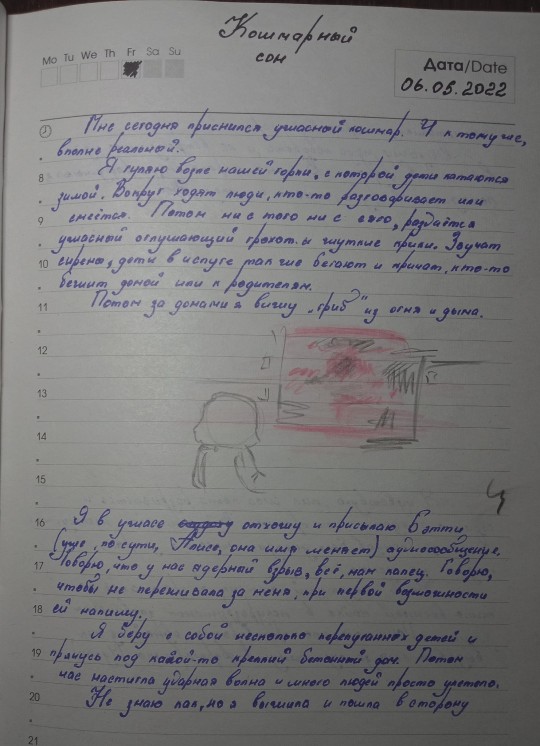 Кошмарный
сон
Mo Tu We Th Fr Sa Su
Дата/Date
06.05.2022
Мне сегодня приснился ужасный кошмар. И к тому же,
вполне реальный.
8
Я гуляю возле нашей горки, с которой дети катаются
зимой. Вокруг ходят люди, кто-то разговаривает или
9
смеётся. Потом ни с того ни с сего, раздаётся
ужасной оглушающий грохот и жуткие крики. Звучат
10
сирены, дети в испуге так же бегают и кричат, кто-то
бежит домой или к родителям.
11
Потом за домами я вижу „гриб" из огня и дыма.
12
13
14
15
16
Я в ужасе отхожу и присылаю Бэтти
(уже, по сути, Алисе, она имя меняет) аудиосообщение.
17
Говорю, что у нас ядерный взрыв, всё, нам капец. Говорю,
чтобы не переживала за меня, при первой возможности
18
ей напишу.
Я беру с собой несколько перепуганных детей и
19
прячусь под какой-то крепкий бетонный дом. Потом
нас настигла ударная волна и много людей просто улетело.
20
Не знаю как, но я выжила и пошла в сторону
21